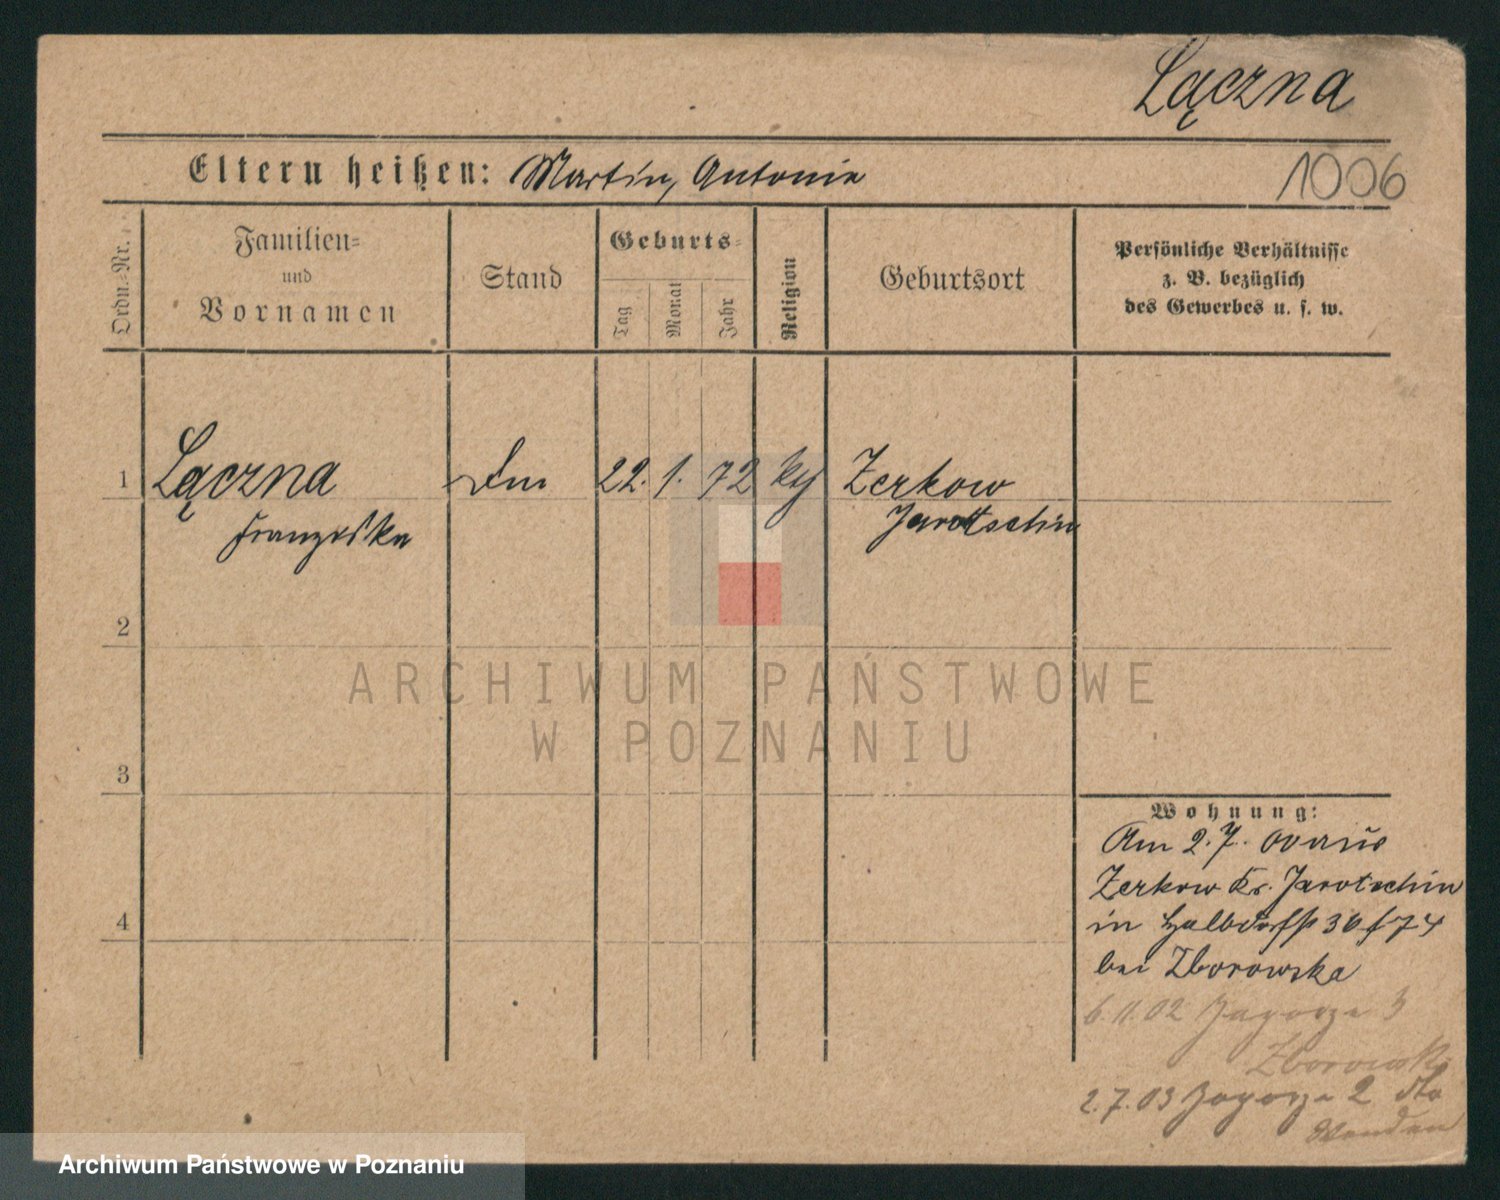 Łączna
Eltern heißen: Martin, Antonie
1006
Ordn.-Nr.
Familien-
und
Vornamen
Stand
Geburts-
Tag
Monat
Jahr
Religion
Geburtsort
Persönliche Verhältnisse
z. B. bezüglich
des Gewerbes u. s. w.
1 Łączna 22. 1. 72 Zerkow
Franziska Jarotschin
2
ARCHIWUM PAŃSTWOWE
W POZNANIU
3
Wohnung:
Am 2. 7.
Zerkow Kr. Jarotschin
4
in Halbdorfstr 36
bei Zborowska
6. 11. 02 Zagorze 3
Zborowski
2. 7. 03 Zagorze 2 dto
Archiwum Państwowe w Poznaniu